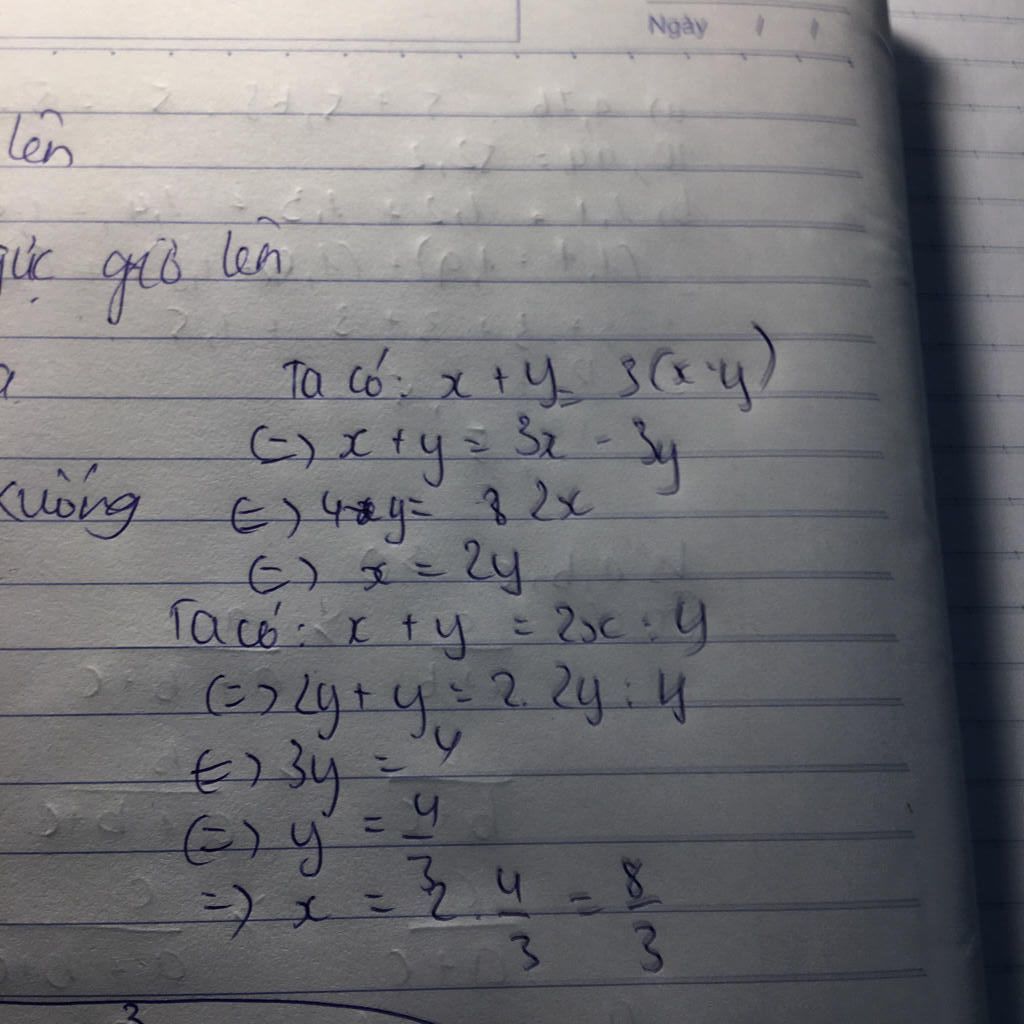 Ngày
lên
giơ lên
Ta có: x + y = 3(x-y)
(=) x + y = 3x - 3y
(=) 4y = 2x
xuống
(=) x = 2y
Ta có: x + y = 2x : y
(=) 2y + y = 2. 2y : y
(=) 3y = 4
(=) y = 4/3
=) x = 2. 4/3 = 8/3
3